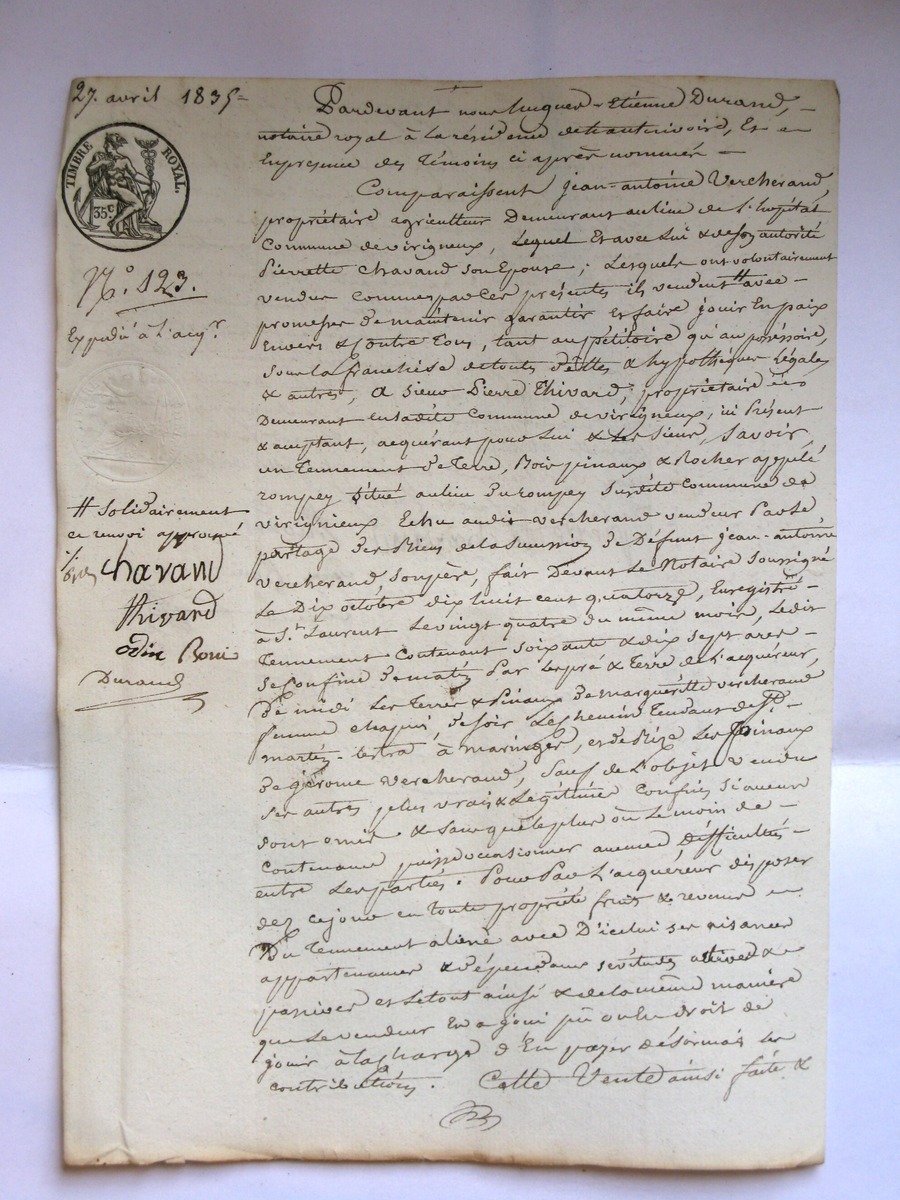 27. avril 1835=
TIMBRE ROYAL.
35c
N.o 123.
Expédié à l'acqr
# Solidairement
ce renvoi approuvé
Chavand
Thivard
odin Boni
Durand
Pardevant nous hugues-Etienne Durand,
notaire royal à la résidence de hauterivoire, Et en
la présence des témoins ci après nommés
Comparaissent jean-antoine Vercherand,
propriétaire agriculteur Demeurant au lieu de l'hopital
Commune de virigneux, Lequel Et avec Lui & de son autorité
Pierrette Chavand son Epouse; Lesquels ont volontairement
vendu comme par ces présentes ils vendent # avec
promesses de maintenir garantir Et faire jouir En paix
Envers & Contre Tous, tant au pétitoire qu'au possessoire,
sous la franchise de touts dettes & hypothèques Légales
& autres, a sieur Pierre Thivard, propriétaire
Demeurant En ladite Commune de virigneux, ici Présent
& acceptant, acquérant pour Lui & les siens, savoir
un Tennement de Terre, Bois pinaux & Rocher appelé
rompey, situé au lieu du rompey susdite Commune de
virignieux Echu audit vercherand vendeur Par le
partage des Biens de la succession de Défunt jean-antoine
vercherand, son père, fait Devant Le Notaire soussigné
Le Dix octobre dix huit cent quatorze, Enregistré
à St. Laurent Le vingt quatre du même mois, Ledit
Tennement Contenant soixante & dix sept ares
se Confine de matin Par Les pré & terre de L'acquéreur,
De midi Les Terres & Pinaux de marguéritte vercherand
femme chapuis, de soir Le chemin Tendant de St.
martin-lestra à maringes, et de Bize Les Pinaux
de gérome vercherand, sauf de L'objet vendu
ses autres plus vrais & Légitimes Confins si aucuns
sont omis & sans que le plus ou Le moin de
Contenance puisse occasionner aucunes Difficultés
entre Les parties. Pour Par L'acquéreur disposer
dez ce jour en toute propriété fruits & revenus
Du Tennement aliéné avec D'icelui ses aisances
appartenances & dépendances servitudes actives &
passives et Le tout ainsi & de la même manière
que Le vendeur En a joui pû ou eu droit de
jouir à la charge d'En payer désormais les
contributions. Cette Vente ainsi faite &